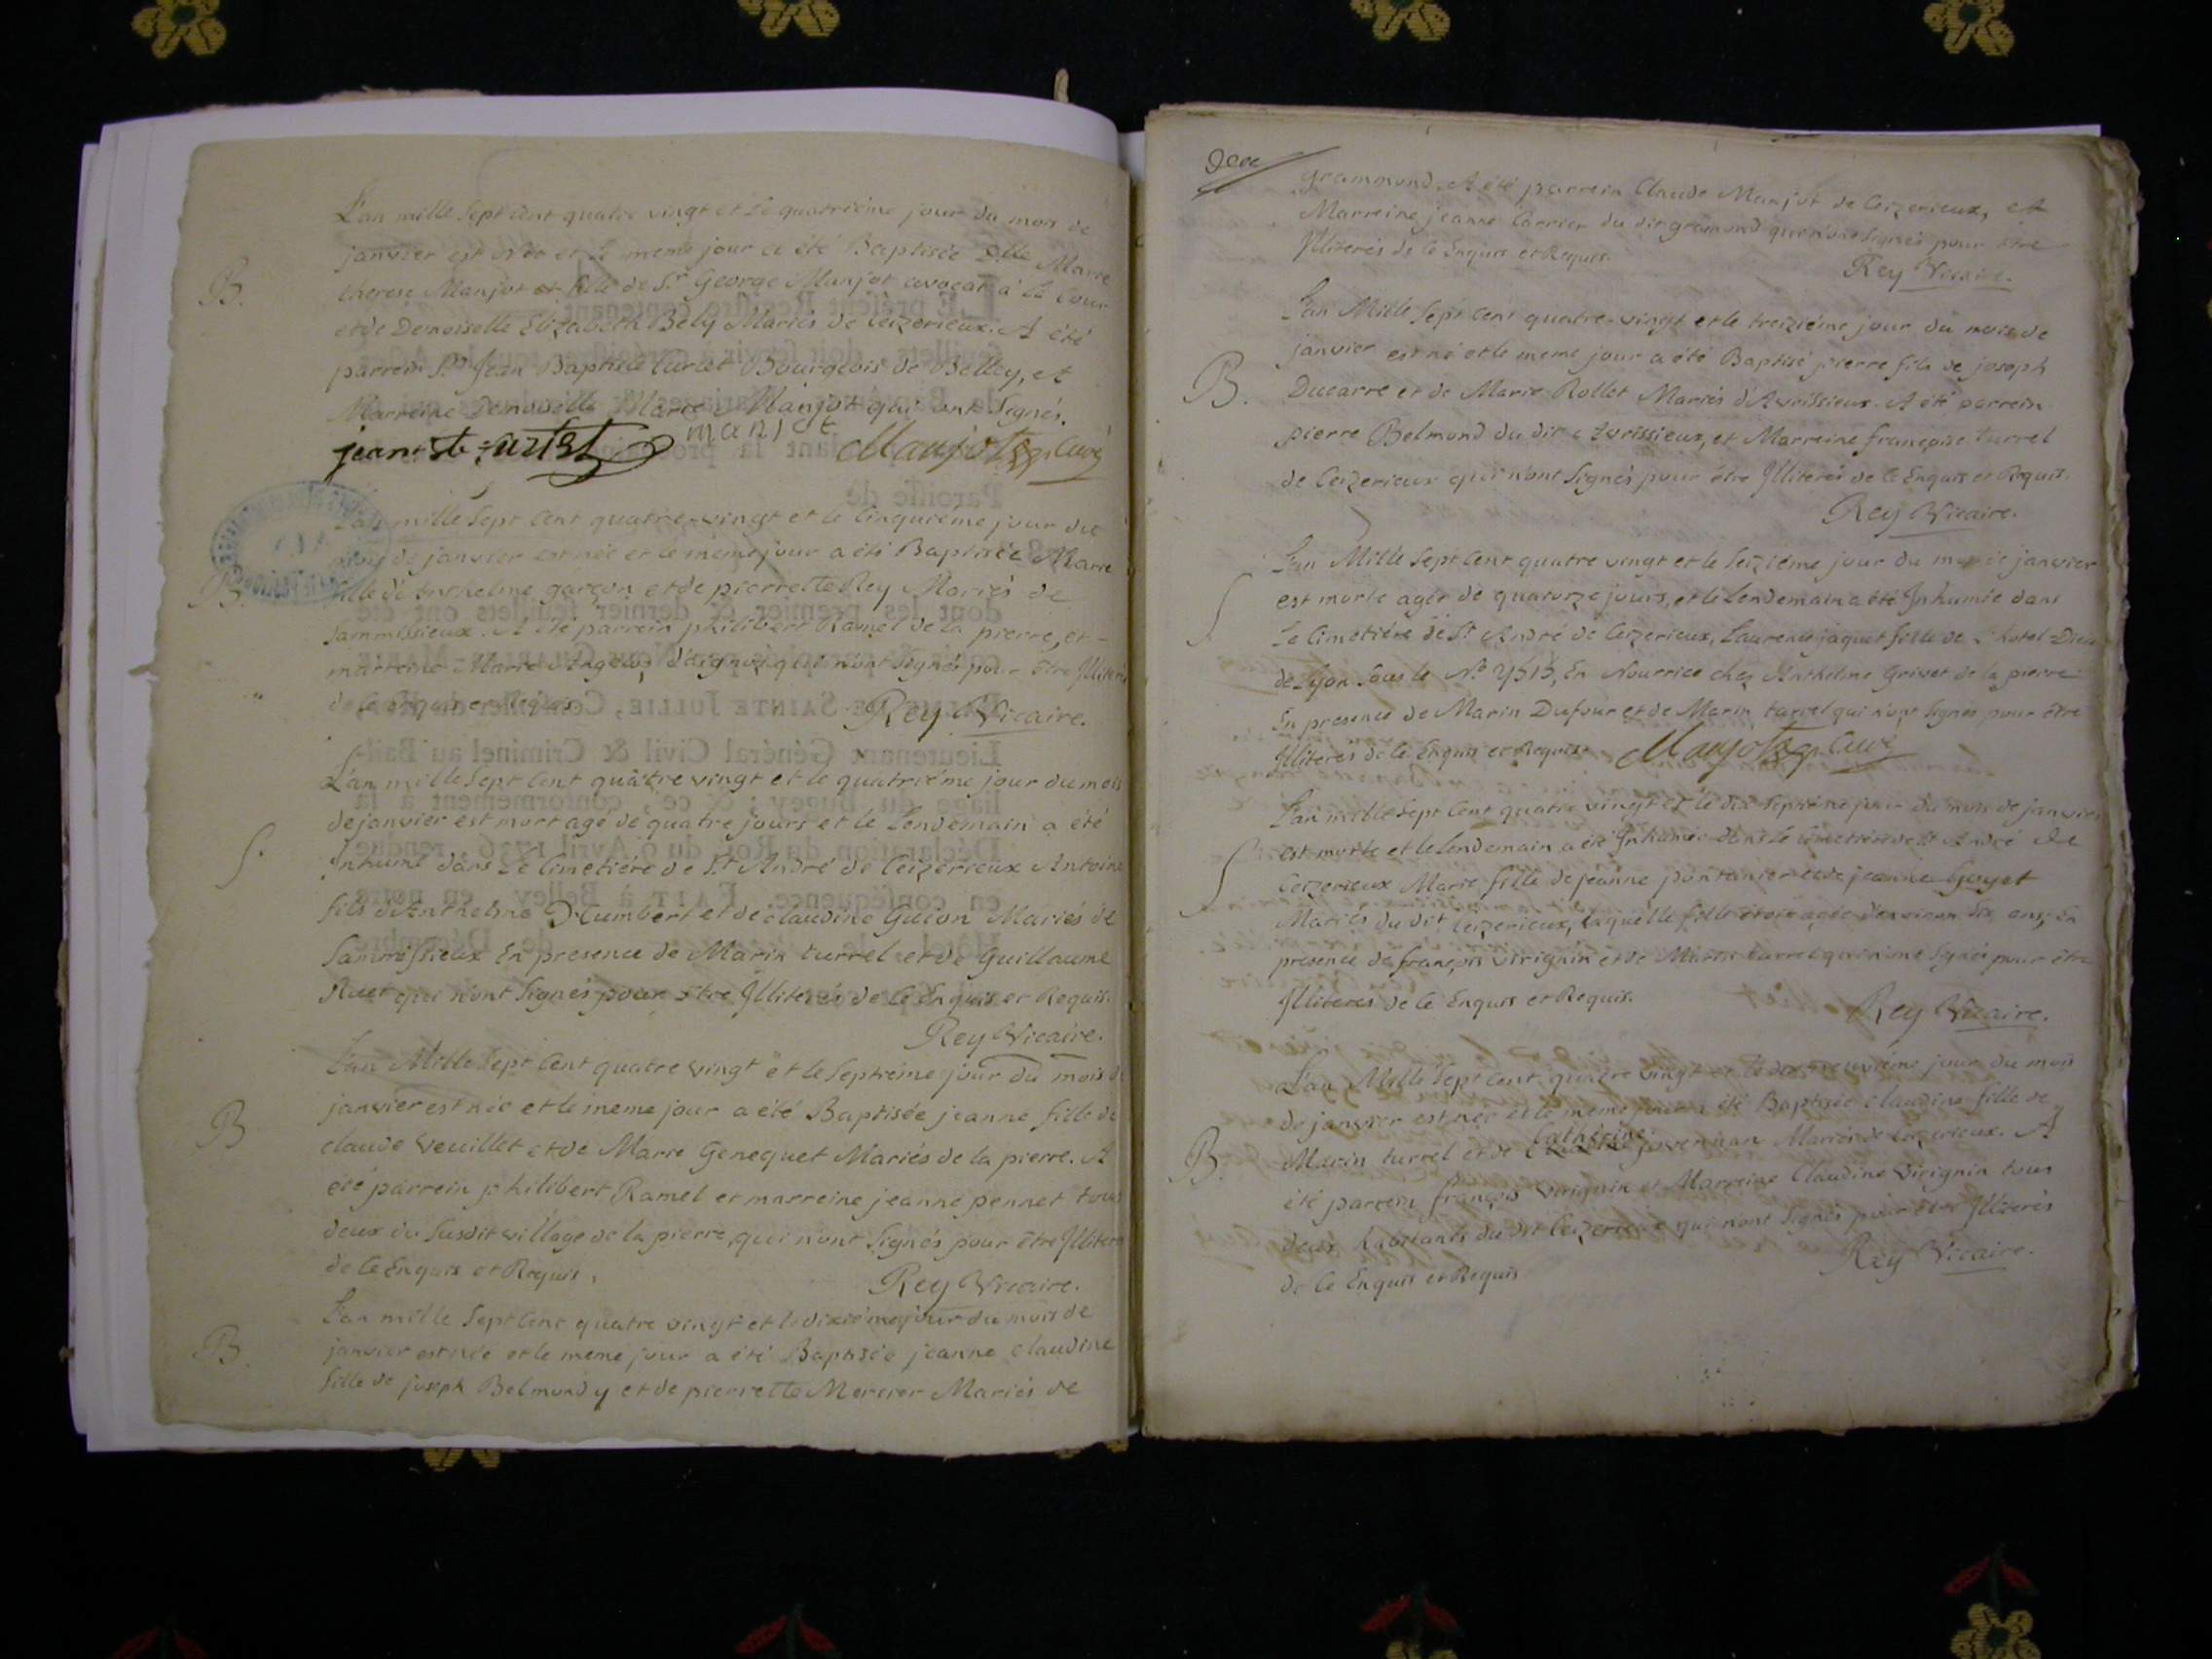 L'an mille Sept cent quatre vingt et le quatriéme jour du mois de
janvier est née et le meme jour a été Baptisée Dlle Marie
B. therese Manjot fille de Sr George Manjot avocat à la Cour
et de Demoiselle Elizabeth Bely Mariés de Ceizerieux. A été
parrein Sr Jean Baptiste Curtet Bourgeois de Belley, et
Marreine Demoiselle Marie Manjot qui ont Signés.
manjot
Manjot Curé
L'an mille Sept Cent quatre-vingt et le Cinquiéme jour du
mois de janvier est née et le meme jour a été Baptisée Marie
B. fille d'Anthelme garçon et de pierrette Rey Mariés de
Sammissieux. A été parrein philibert Ramel de la pierre, et
marreine Marie qui n'ont Signés pour être Illiterés
de le Enquis et Requis
Rey Vicaire.
L'an mille Sept Cent quatre vingt et le quatriéme jour du mois
de janvier est mort agé de quatre jours et le Lendemain a été
S. Inhumé dans Le Cimetiére de St André de Ceizerieux Antoine
fils d'Anthelme D'humbert et de claudine Guion Mariés de
Sammissieux En presence de Marin turrel et de Guillaume
Ruet qui n'ont Signés pour être Illiterés de le Enquis et Requis.
Rey Vicaire.
L'an Mille Sept Cent quatre vingt et le Septiéme jour du mois de
janvier est née et le meme jour a été Baptisée jeanne fille de
B claude Veuillet et de Marie Genequet Mariés de la pierre. A
été parrein philibert Ramel et marreine jeanne pennet tous
deux du Susdit village de la pierre, qui n'ont Signés pour être Illiterés
de le Enquis et Requis.
Rey Vicaire.
L'an mille Sept Cent quatre vingt et le dixiéme jour du mois de
B. janvier est née et le meme jour a été Baptisée jeanne claudine
fille de joseph Belmondy et de pierrette Mercier Mariés de
grammond. A été parrein Claude Manjot de Ceizerieux, et
Marreine jeanne Carrier du dit gramond qui n'ont Signés pour être
Illiterés de le Enquis et Requis.
Rey Vicaire.
L'an Mille Sept Cent quatre-vingt et le treiziéme jour du mois de
janvier est né et le meme jour a été Baptisé pierre fils de joseph
B. Ducarre et de Marie Rollet Mariés d'Avrissieux. A été parrein
pierre Belmond du dit Avrissieux, et Marreine françoise turrel
de Ceizerieux qui n'ont Signés pour être Illiterés de le Enquis et Requis.
Rey Vicaire.
L'an Mille Sept Cent quatre vingt et le Seiziéme jour du mois de janvier
est morte agée de quatorze jours, et le Lendemain a été Inhumée dans
S Le Cimetiére de St André de Ceizerieux, Laurence jaquet fille de L'hotel-Dieu
de Lyon Sous le No En Nourrice chez Anthelme Grivet de la pierre
En presence de Marin Dufour et de Marin turrel qui n'ont Signés pour être
Illiterés de le Enquis et Requis. Manjot Curé
L'an mille Sept Cent quatre vingt et le dix Septiéme jour du mois de janvier
est morte et le lendemain a été Inhumée dans le Cimetiére de St André de
S Ceizerieux Marie fille de jeanne pontanier et de jeanne Goujet
Mariés du dit Ceizerieux, laquelle fille étoit agée d'environ dix ans; En
presence de françois Virignin et de Marin turrel qui n'ont Signés pour être
Illiterés de le Enquis et Requis.
Rey Vicaire.
L'an Mille Sept Cent quatre vingt et le dix neuviéme jour du mois
de janvier est née et le meme jour a été Baptisée Claudine fille de
Catherine
B. Marin turrel et de juvenuan Mariés de Ceizerieux. A
été parrein françois Virignin et Marreine Claudine Virignin tous
deux habitants du dit Ceizerieux qui n'ont Signés pour être Illiterés
de le Enquis et Requis
Rey Vicaire.